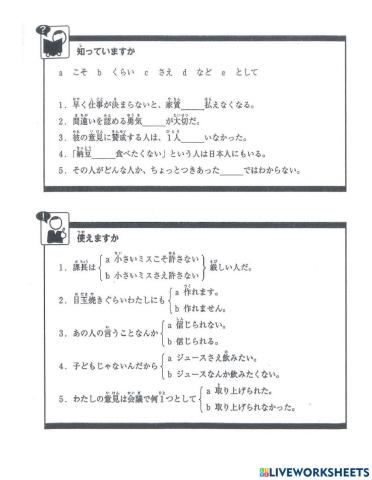 知っていますか
a こそ b くらい c さえ d など e として
1．早く仕事が決まらないと、家賃_____払えなくなる。
2．間違いを認める勇気_____が大切だ。
3．彼の意見に賛成する人は、1人_____いなかった。
4．「納豆_____食べたくない」という人は日本人にもいる。
5．その人がどんな人か、ちょっとつきあった_____ではわからない。
使えますか
1．課長は
a 小さいミスこそ許さない
b 小さいミスさえ許さない
厳しい人だ。
2．目玉焼きぐらいわたしにも
a 作れます。
b 作れません。
3．あの人の言うことなんか
a 信じられない。
b 信じられる。
4．子どもじゃないんだから
a ジュースさえ飲みたい。
b ジュースなんか飲みたくない。
5．わたしの意見は会議で何1つとして
a 取り上げられた。
b 取り上げられなかった。
LIVEWORKSHEETS